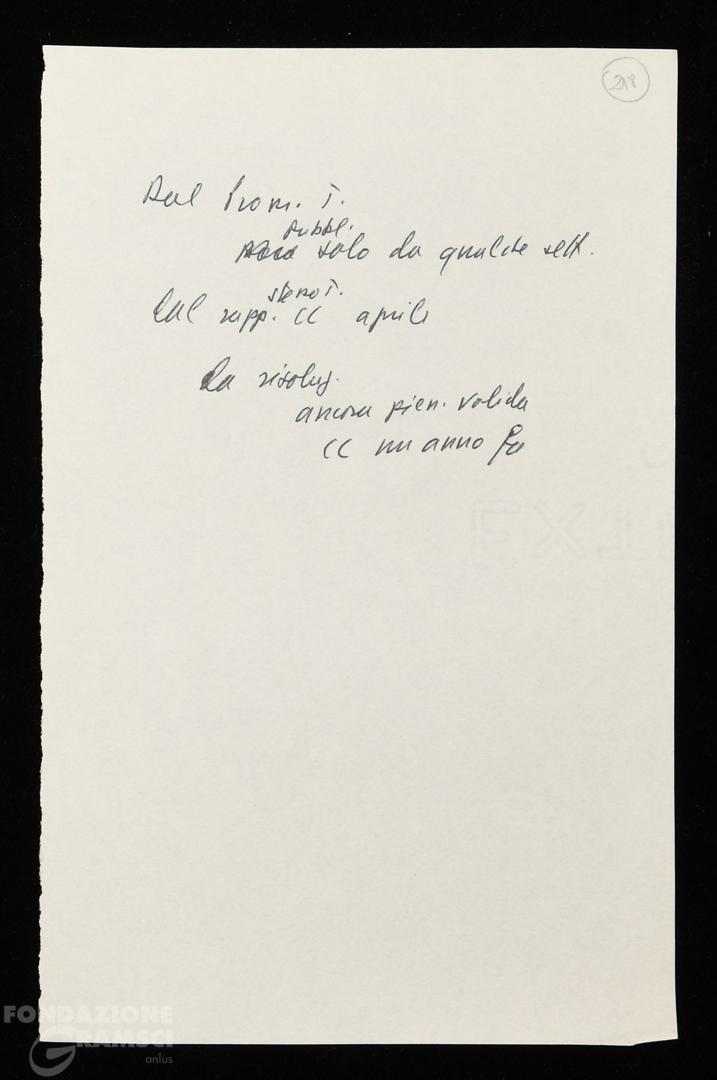 218
Dal Prom. T.
pubbl.
solo da qualche sett.
stesso T.
Dal rapp. CC aprile
La risoluz.
ancora pien. valida
CC un anno fa
EXT
FONDAZIONE
GRAMSCI
onlus